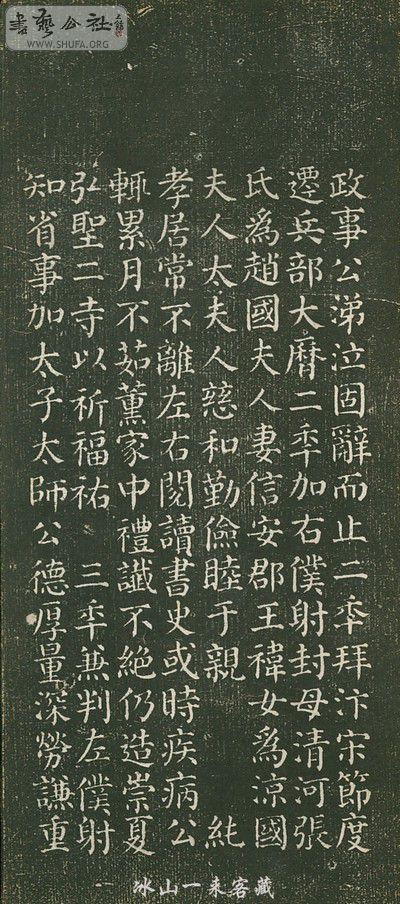 書藝公社
WWW.SHUFA.ORG
政事公涕泣固辭而止二秊拜汴宋節度
遷兵部大曆二秊加右僕射封母清河張
氏為趙國夫人妻信安郡王褘女為涼國
夫人太夫人慈和勤儉睦于親 純
孝居常不離左右閱讀書史或時疾病公
輒累月不茹薰家中禮讖不絕仍造崇夏
弘聖二寺以祈福祐 三秊兼判左僕射
知省事加太子太師公德厚量深勞謙重
冰山一来客藏